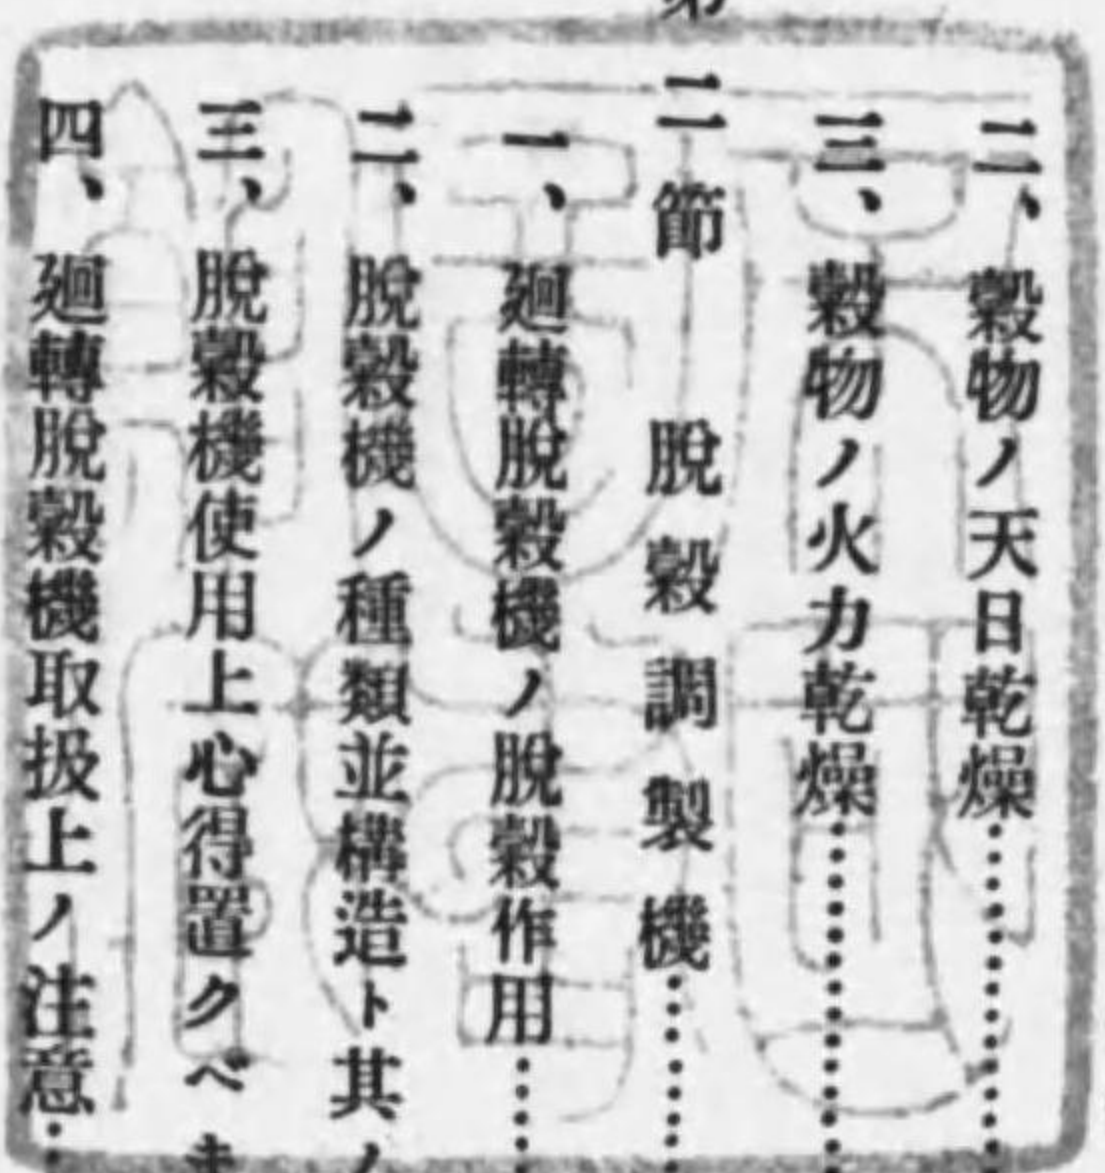 二、穀物ノ天日乾燥…………
三、穀物ノ火力乾燥…………
二節 脫穀調製機…………
一、廻轉脫穀機ノ脫穀作用…………
二、脫穀機ノ種類並構造ト其ノ
三、脫穀機使用上心得置クベキ
四、廻轉脫穀機取扱上ノ注意…